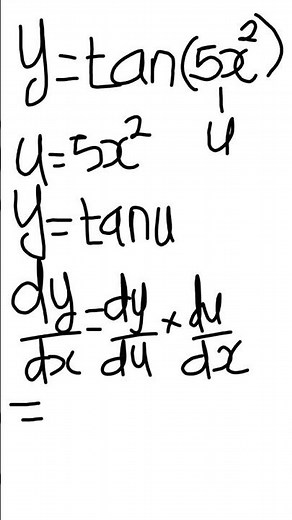 y=tan(5x²)
u
u=5x²
y=tanu
dy/dx=dy/du×du/dx
=